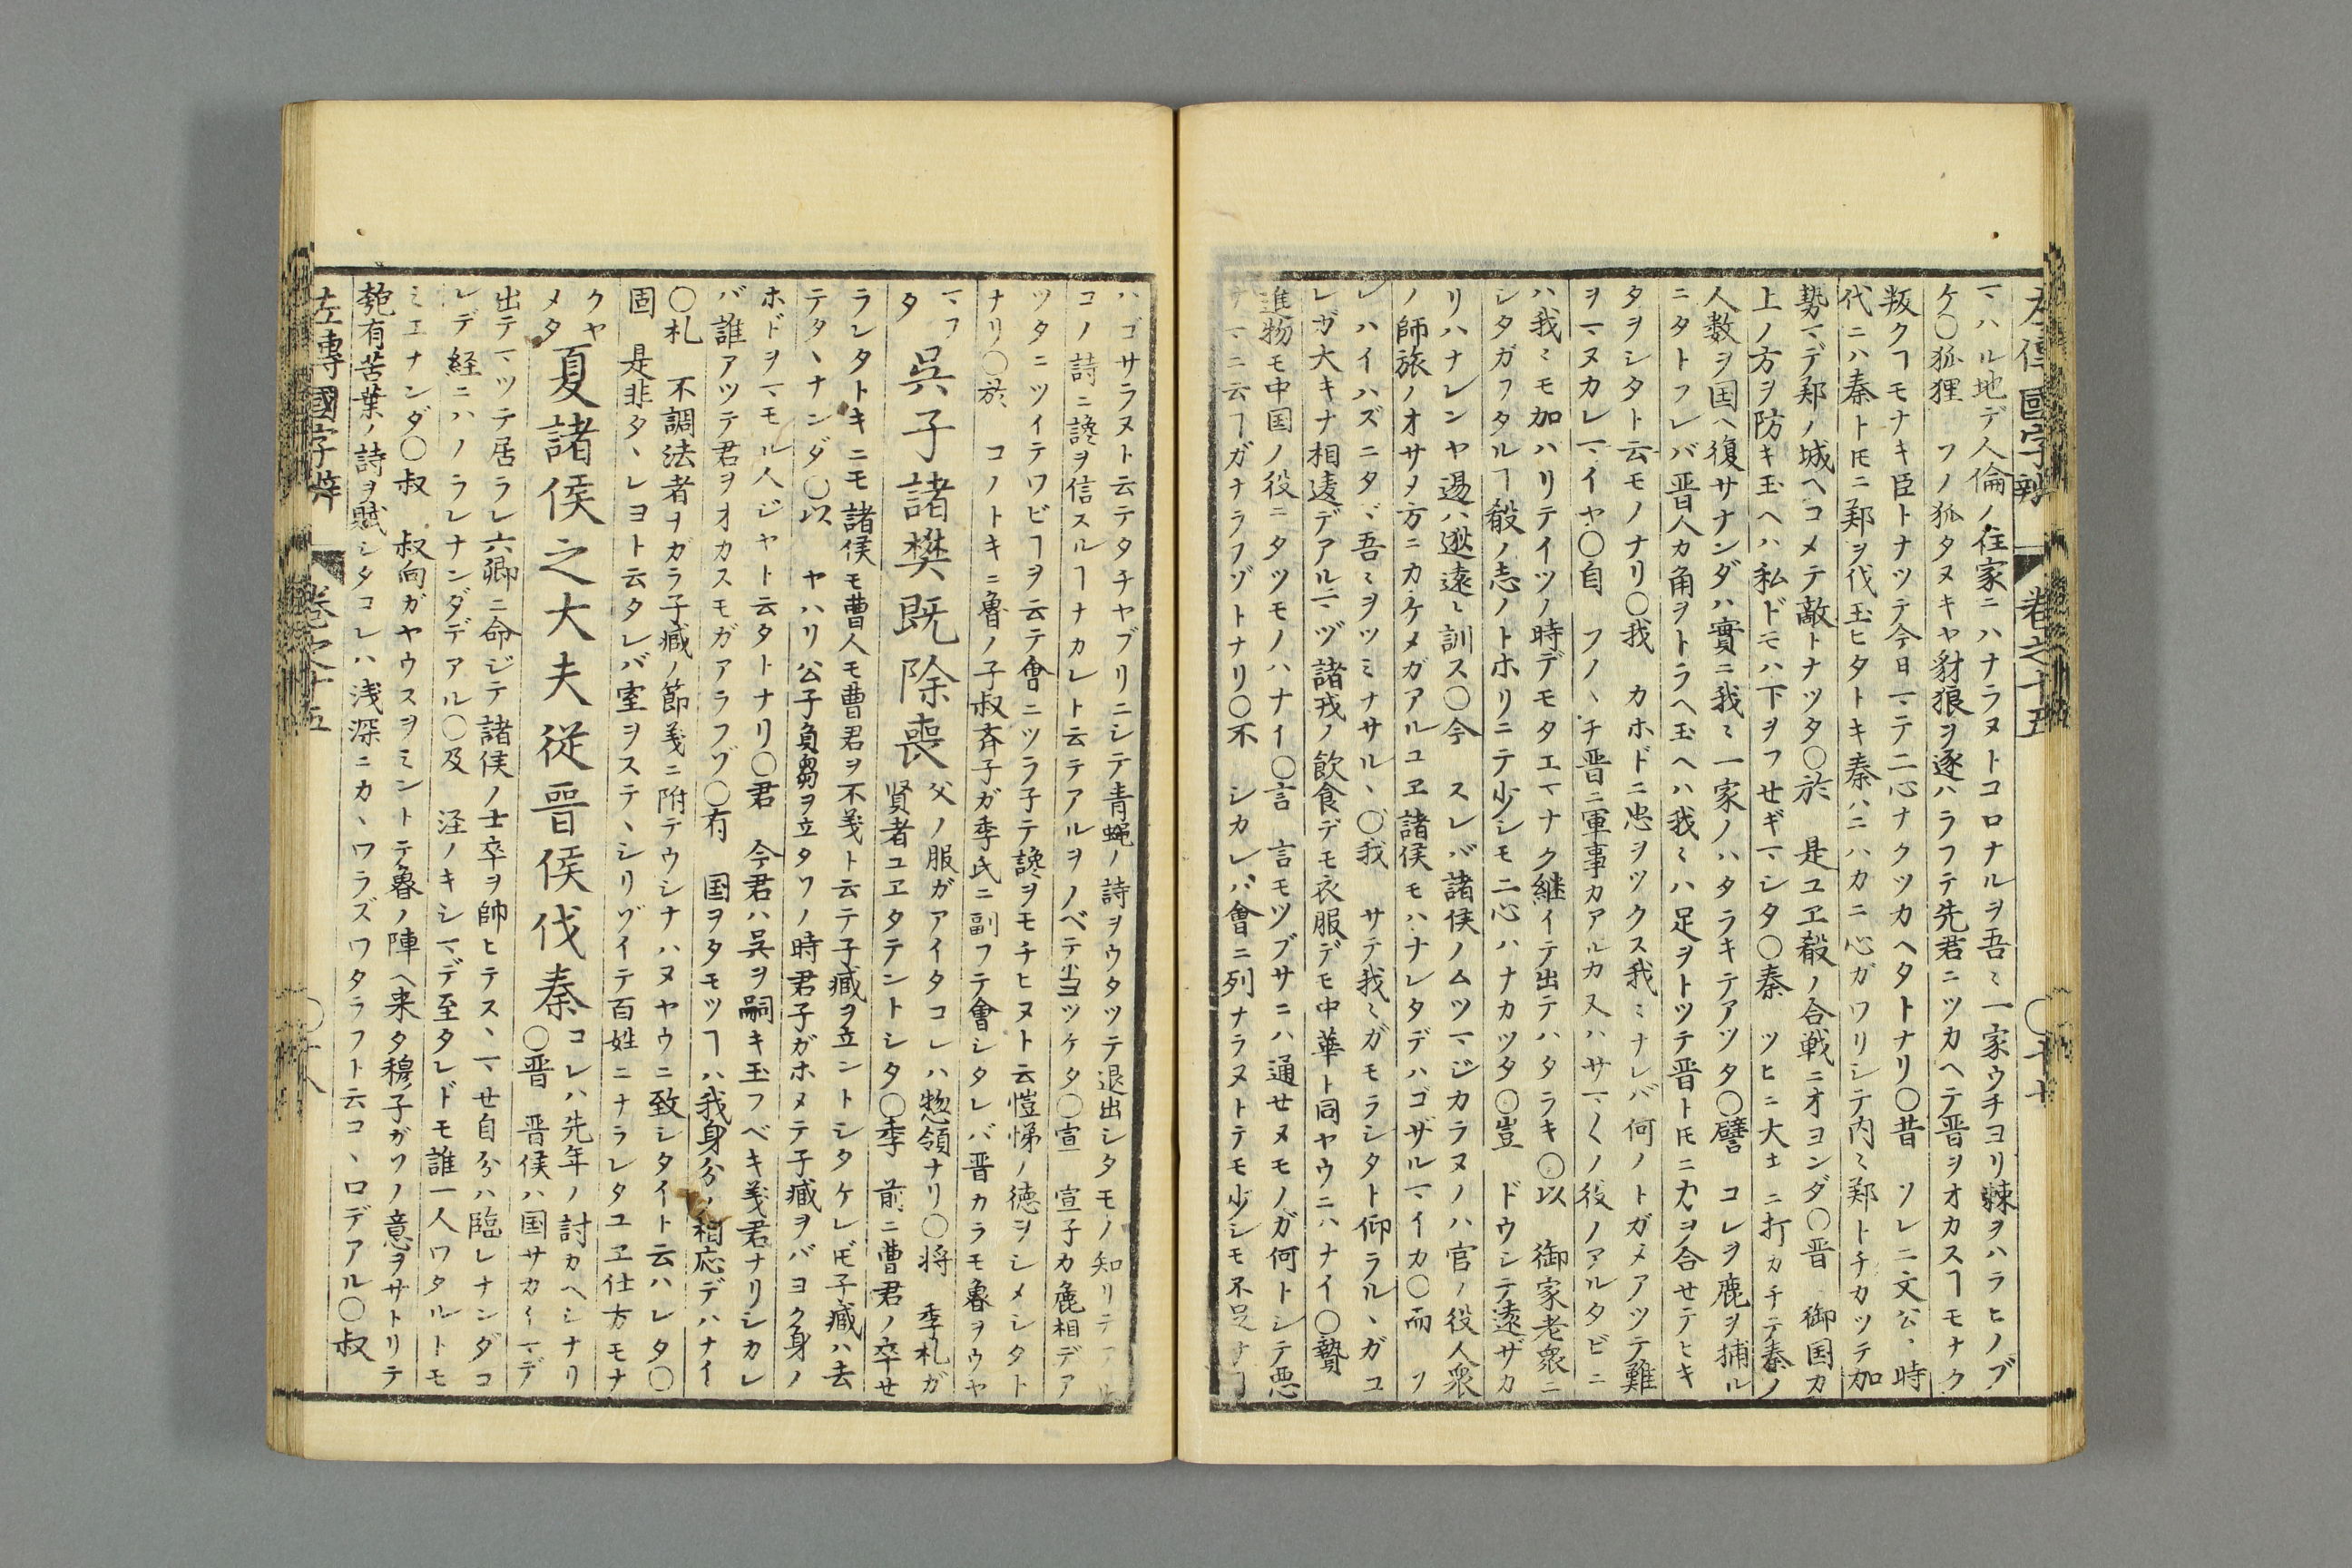 左傳國字辯　巻之十五　〇十七
マハル地デ人倫ノ住家ニハナラヌトコロナルヲ吾〻一家ウチヨリ棘ヲハラヒノブ
ケ〇狐狸　ソノ狐タヌキヤ豺狼ヲ逐ハラフテ先君ニツカヘテ晋ヲオカスヿモナク
叛クヿモナキ臣トナツテ今日マデ二心ナクツカヘタトナリ〇昔　ソレニ文公ヽ時
代ニハ秦トトモニ鄭ヲ伐玉ヒタトキ秦ハニハカニ心ガワリシテ内〻鄭トチカツテ加
勢マデ鄭ノ城ヘコメテ敵トナツタ〇於　是ユヱ殽ノ合戦ニオヨンダ〇晋　御国カ
上ノ方ヲ防キ玉ヘハ私ドモハ下ヲフせギマシタ〇秦　ツヒニ大キニ打カチテ秦ノ
人数ヲ国ヘ復サナンダハ實ニ我〻一家ノハタラキテアツタ〇譬　コレヲ鹿ヲ捕ル
ニタトフレバ晋人カ角ヲトラヘ玉ヘハ我〻ハ足ヲトツテ晋トトモニ力ヲ合せテヒキ
タヲシタト云モノナリ〇我　カホドニ忠ヲツクス我〻ナレバ何ノトガメアツテ難
ヲマヌカレマイヤ〇自　フノヽチ晋ニ軍事カアルカ又ハサマ〱ノ役ノアルタビニ
ハ我〻モ加ハリテイツノ時デモタエマナク継イテ出テハタラキ〇以　御家老衆ニ
シタガフタルヿ殽ノ志ノトホリニテ少シモ二心ハナカツタ〇豈　ドウシテ遠ザカ
リハナレンヤ逷ハ逖遠〻訓ス〇今　スレバ諸侯ノムツマジカラヌノハ官ノ役人衆
ノ師旅ノオサメ方ニカケメガアルユヱ諸侯モハナレタデハゴザルマイカ〇而　ソ
レハイハズニタヾ吾〻ヲツミナサルヽ〇我　サテ我〻ガモラシタト仰ラルヽガコ
レガ大キナ相違デアルマヅ諸戎ノ飲食デモ衣服デモ中華ト同ヤウニハナイ〇贄
進物モ中国ノ役ニタツモノハナイ〇言　言モツブサニハ通せヌモノガ何トシテ悪
サマニ云ヿガナラフゾトナリ〇不　シカレバ會ニ列ナラヌトテモ少シモ不足ナヿ
ハゴサラヌト云テタチヤブリニシテ青蝿ノ詩ヲウタツテ退出シタモノ知リテアル
コノ詩ニ讒ヲ信スルヿナカレト云テアルヲノベテ当ツケタ〇宣　宣子カ麁相デア
ツタニツイテワビヿヲ云テ會ニツラ子テ讒ヲモチヒヌト云愷悌ノ徳ヲシメシタト
ナリ〇於　コノトキニ魯ノ子叔斉子ガ季氏ニ副フテ會シタレバ晋カラモ魯ヲウヤ
マフ
タ
呉子諸樊既除喪
父ノ服ガアイタコレハ惣領ナリ〇将　季札ガ
賢者ユヱタテントシタ〇季　前ニ曹君ノ卒せ
ラレタトキニモ諸侯モ曹人モ曹君ヲ不義ト云テ子臧ヲ立ントシタケレドモ子臧ハ去
テタヽナンダ〇以　ヤハリ公子負芻ヲ立タソノ時君子ガホメテ子臧ヲバヨク身ノ
ホドヲマモル人ジヤト云タトナリ〇君　今君ハ呉ヲ嗣キ玉フベキ義君ナリシカレ
バ誰アツテ君ヲオカスモガアラフゾ〇有　国ヲタモツヿハ我身分ノ相応デハナイ
〇札　不調法者ヲガラ子臧ノ節義ニ附テウシナハヌヤウニ致シタイト云ハレタ〇
固　是非タヽレヨト云タレバ室ヲステヽシリゾイテ百姓ニナラレタユヱ仕方モナ
クヤ
メタ
夏諸侯之大夫従晋侯伐秦
コレハ先年ノ討カヘシナリ
〇晋　晋侯ハ国サカイマデ
出テマツテ居ラレ六卿ニ命ジテ諸侯ノ士卒ヲ帥ヒテスヽマせ自分ハ臨レナンダコ
レデ経ニハノラレナンダデアル〇及　涇ノキシマデ至タレドモ誰一人ワタルトモ
ミエナンダ〇叔　叔向ガヤウスヲミントテ魯ノ陣ヘ来タ穆子ガソノ意ヲサトリテ
匏有苦葉ノ詩ヲ賦シタコレハ浅深ニカヽワラズワタラフト云コヽロデアル〇叔
左傳國字辯　巻之十五　〇十八